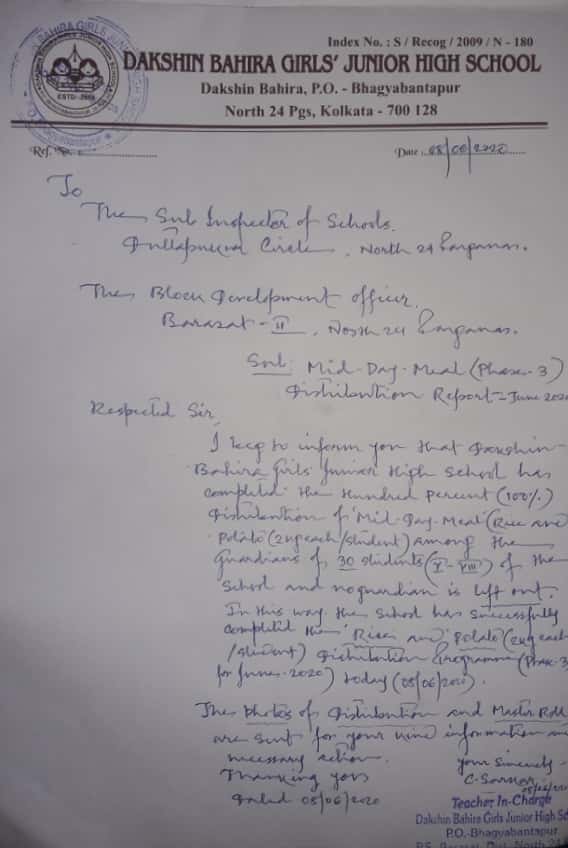 Index No. : S / Recog / 2009 / N - 180
DAKSHIN BAHIRA GIRLS' JUNIOR HIGH SCHOOL
Dakshin Bahira, P.O. - Bhagyabantapur
North 24 Pgs, Kolkata - 700 128
ESTD.-2009
Ref. No. : Date : 08/06/2020
To
The Sub Inspector of Schools.
Circle, North 24 Parganas.
The Block Development officer.
Barasat - II, North 24 Parganas.
Sub: Mid-Day-Meal (Phase-3)
Distribution Report - June 2020
Respected Sir,
I beg to inform you that Dakshin-
Bahira Girls' Junior High School has
completed the Hundred Percent (100%)
Distribution of 'Mid-Day-Meal' (Rice and
Potato (2kg each/student) among the
Guardians of 30 students (V - VIII) of the
School and no guardian is lift out.
In this way the School has successfully
completed the 'Rice and Potato (2kg each
/student) Distribution Programme (Phase-3
for June-2020) today (08/06/2020).
The photos of Distribution and Master Roll
are sent for your kind information and
necessary action.
Thanking you
Dated 08/06/2020
your Sincerely -
C. Sarkar
08/06/20
Teacher In-Charge
Dakshin Bahira Girls Junior High Sc
P.O.-Bhagyabantapur
P.S. Barasat, Dist. North 24